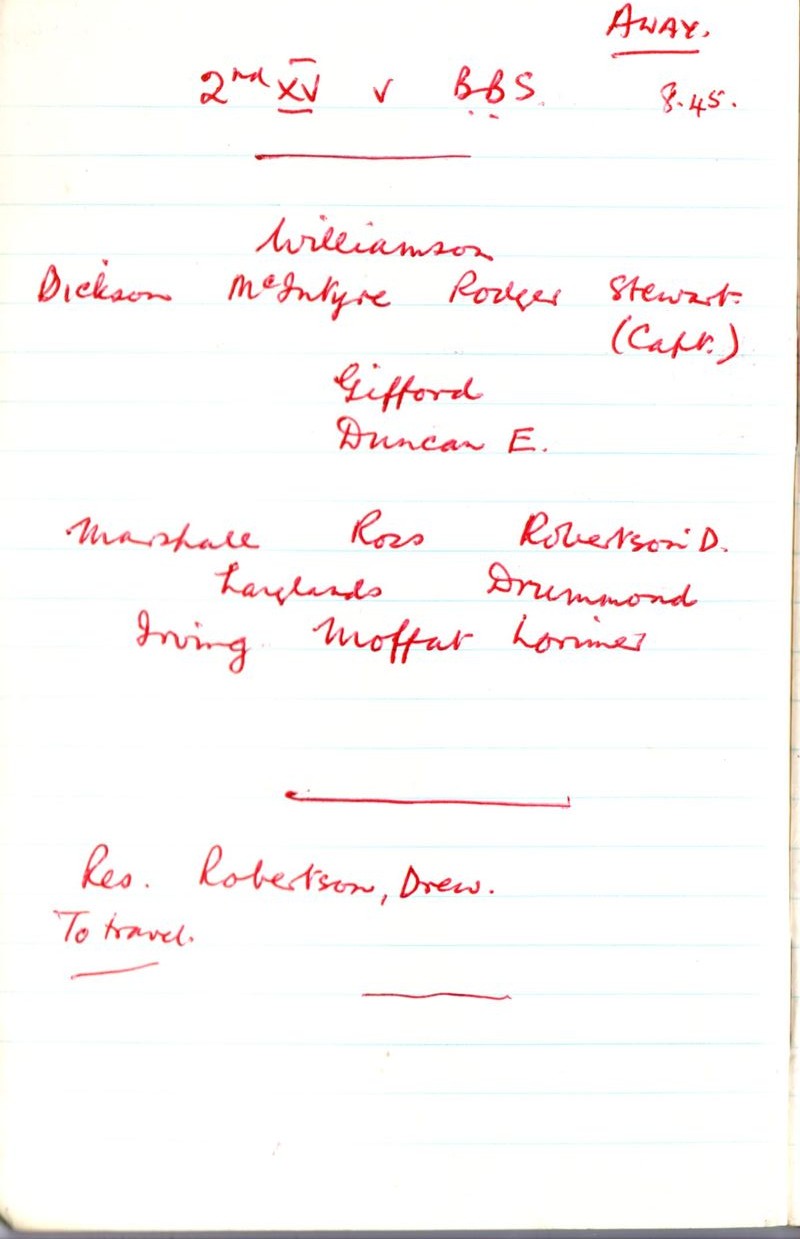 AWAY.
2nd XV v BBS. 8.45.
Williamson
Dickson McIntyre Rodger Stewart
(Capt.)
Gifford
Duncan E.
Marshall Ross Robertson D.
Langlands Drummond
Irving Moffat Lorimer
Res. Robertson, Drew.
To travel.